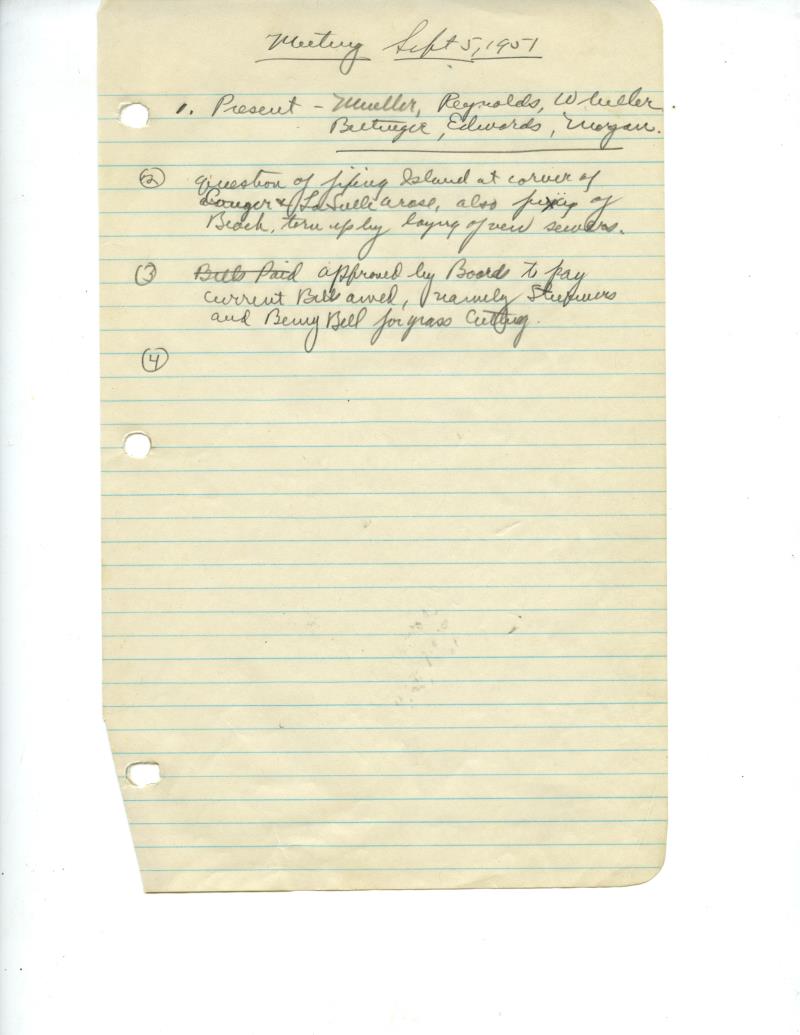 Meeting Sept 5, 1951
1. Present - Mueller, Reynolds, Wheeler
Bettinger, Edwards, Morgan.
(2) Question of fixing Island at corner of
& LaSalle arose, also fixing of
Beach, torn up by laying of new sewers.
(3) Bills Paid approved by Boards to pay
current Bills owed, namely
and Benny Bell for grass Cutting.
(4)